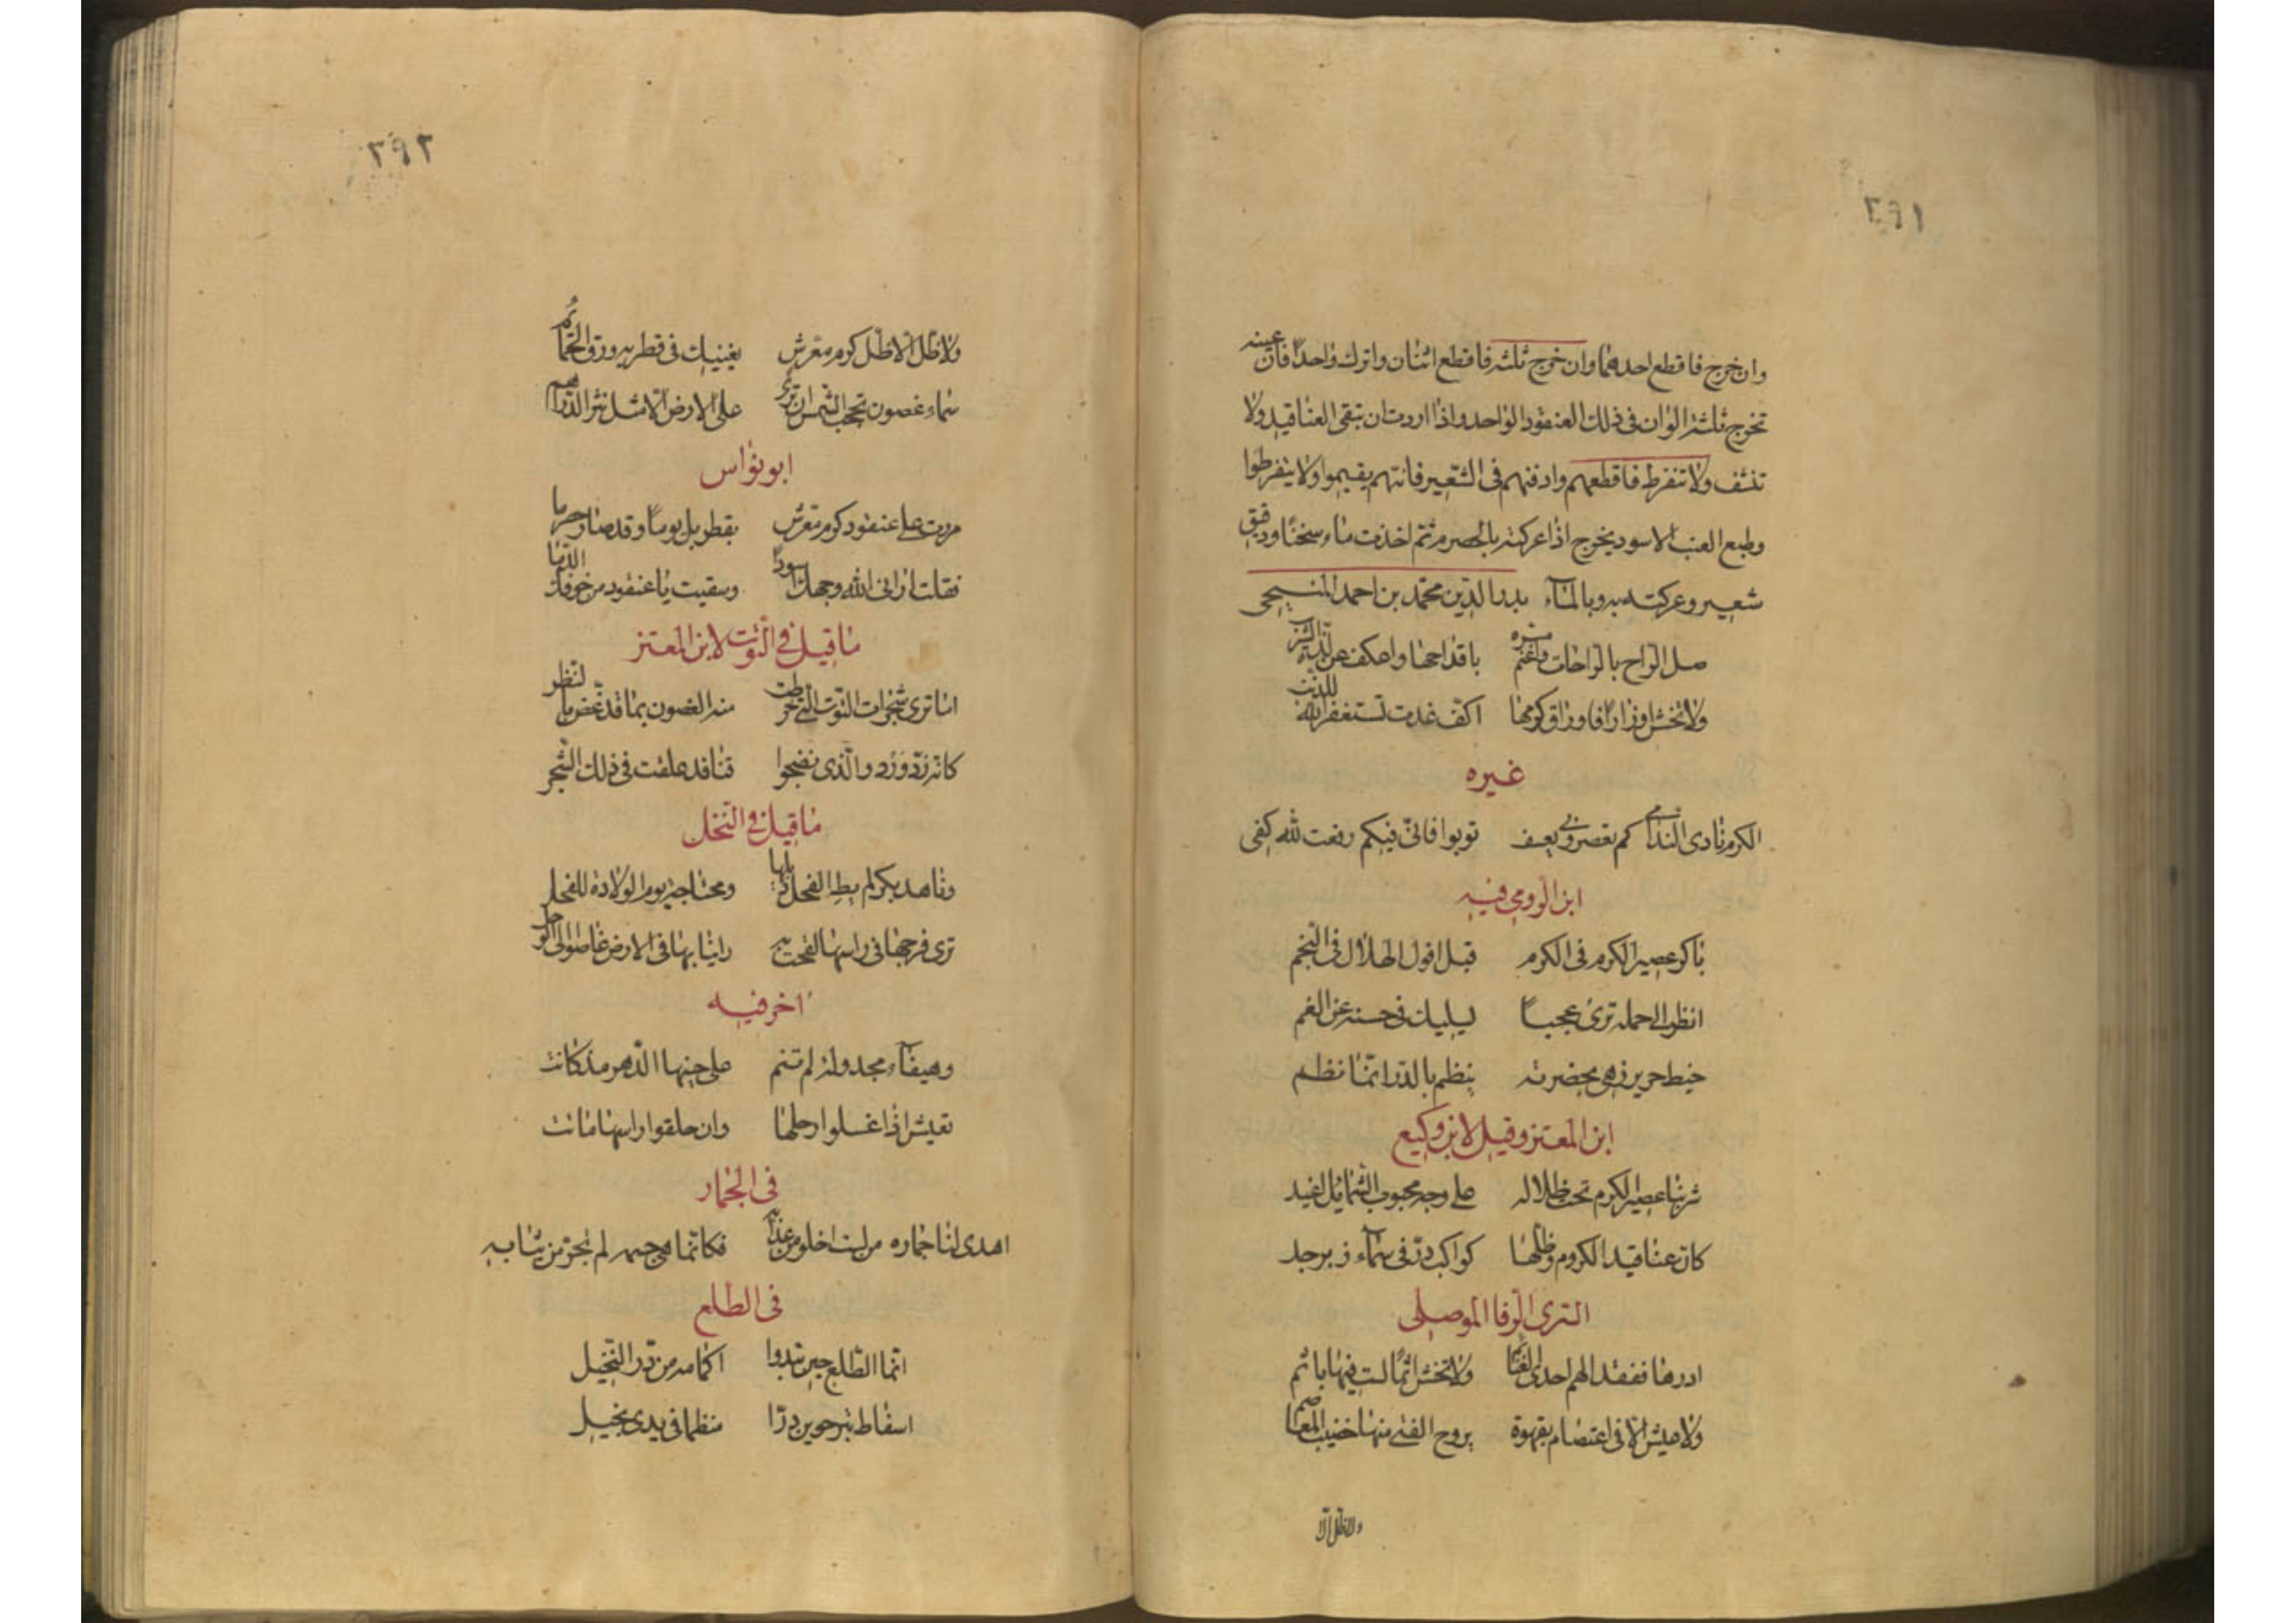 ٢٩١
وان خرج فاقطع احدهما وان خرج ثلثه فاقطع اثنان واترك واحدًا فان عينه
تخرج ثلثة الوان فى ذلك العنقود الواحد واذا اردت ان تبقى العناقيد ولا
تنشف ولا تنفرط فاقطعهم وادفنهم فى الشّعير فانّهم يقيموا ولا ينفرطوا
وطبع العنب الاسود يخرج اذا عركته بالحصرم ثم اخذت ماء سخنًا ودقيق
شعير وعركته به وبالماء بدر الدّين محمّد بن احمد المنبجى
صل الرّاح بالرّاحات واغنم مسره باقداحها واعكف على لذّة الشرب
ولا تخش اوزارًا فاوراق كرمها اكفّ غدت تستغفر الله للذنب
غيره
الكرم نادى الندامى كم تعصروني بعسف توبوا فانّى فيكم رفعت لله كفى
ابن الرّومى فيه
باكر عصير الكرم فى الكرم قبل افول الهلال فى النجم
انظر الى حمله ترى عجبًا ليليك فى حسنه عن الغم
خيط حرير زهى بخضرته ينظم بالدّر ايّما نظم
ابن المعتز وقيل لابن وكيع
شربنا عصير الكرم تحت ظلاله على وجه محبوب الشّمائل اغيد
كان عناقيد الكروم وظلّها كواكب درّ فى سماء زبرجد
السرى الرّفا الموصلى
ادرها ففقد الهم احدى الغنائم ولا تخش اثمًا لست فيها باثم
ولا عيش الا فى اعتصام بقهوة يروح الفتى منها خضيب المعاصم
ولا ظل الّا
٢٩٢
ولا ظلّ الّا ظلّ كرم معرّش يغنيك فى قطريه ورق الحمائمُ
سماء غصون تحجب الشّمس ان ترى على الارض الّا مثل نثر الدّراهم
ابو نواس
مررت على عنقود كرم معرّش بقطربل يومًا وقد صار حصرما
فقلت ارانى الله وجهك اسودًا وسقيت يا عنقود من جوفك الدّما
ما قيل فى التّوت لابن المعتز
اما ترى شجرات التّوت الّتى خرطت منه الغصون بما قد غضّ بالنّظر
كانّه زرد ورد والّذى نضجوا قنا قد علقت فى ذلك الشّجر
ما قيل فى النّخل
وناهد بكر لم يطِ الفحل ذيلها ومحتاجة يوم الولادة للفحل
ترى فرجها فى راسها لقحت به راينا بها فى الارض غاصوا الى الوحل
اخر فيه
وهيفاء مجدولة لم تنم على جنبها الدّهر مذ كانت
تعيش اذا غسلوا رحلها وان حلقوا راسها ماتت
فى الجمار
اهدى لنا جماره من لست اخلو من عذابه فكانّما هى جسمه لم نجرّ من ثيابه
فى الطلع
انّما الطّلع حين تبدوا اكمامه من درّ النّخيل
اسفاط تبر حوين درّا منظما فى يدى بخيل